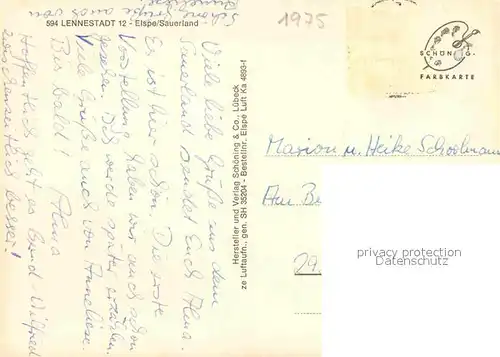 594 LENNESTADT 12 - Elspe/Sauerland
Viele liebe Grüße aus dem
Sauerland sendet Euch Alma.
Es ist hier schön. Die erste
Vorstellung haben wir auch schon
gesehen. Ich werde später erzählen.
Viele Grüße auch von Anneliese.
Bis bald! Alma
Hoffentlich geht es Gerd-Wilfried
zwischenzeitlich besser!
Schöne Grüße auch von
Anneliese
Hersteller und Verlag Schöning & Co., Lübeck
ze Luftaufn., gen. SH 35204 - Bestellnr. Elspe Luft Ka 4893-f
1975
SCHÖNING
FARBKARTE
Marion u. Heike Schoolmann
Am
29
privacy protection
Datenschutz